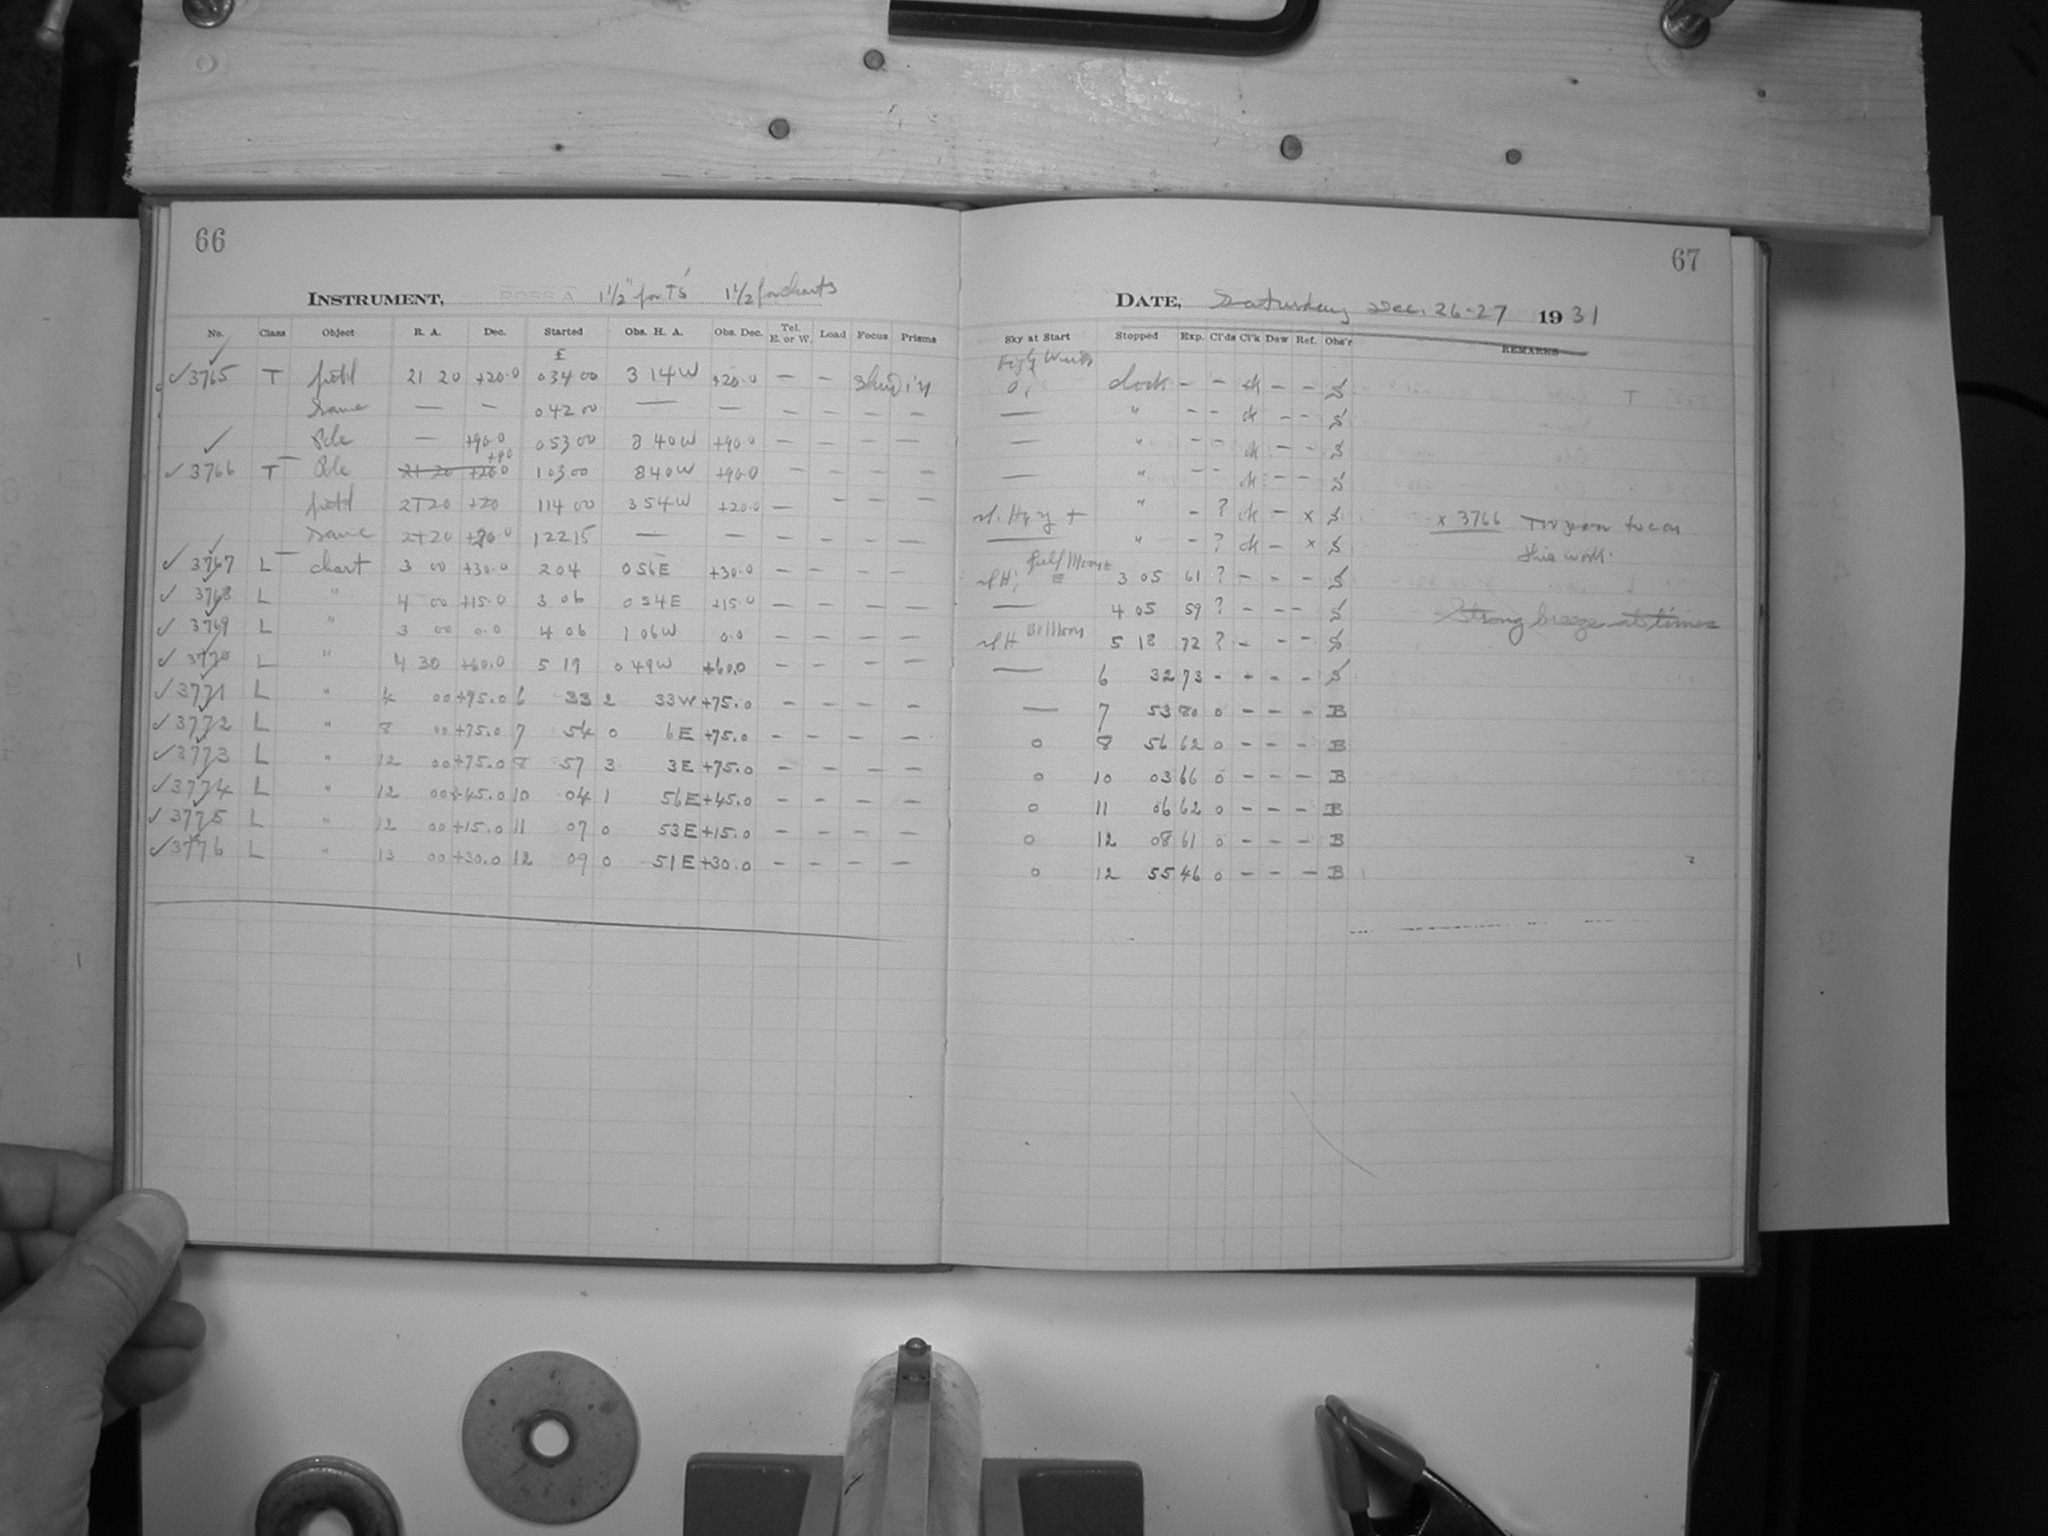 66
INSTRUMENT, ROSS A 1½" for T's 1½ for charts
No. Class Object R. A. Dec. Started Obs. H. A. Obs. Dec. Tel. E. or W. Load Focus Prisms
E
✓3765 T field 21 20 +20.0 0 34 00 3 14 W +20.0 — —
Same — — 0 42 00 — — — — — —
Pole — +90.0 0 53 00 3 40 W +90.0 — — — —
+90
✓3766 T Pole 21 20 +20.0 1 03 00 8 40 W +90.0 — — — —
field 21 20 +20 1 14 00 3 54 W +20.0 — — — —
Same 21 20 +20.0 1 22 15 — — — — — —
✓3767 L chart 3 00 +30.0 2 04 0 56 E +30.0 — — — —
✓3768 L " 4 00 +15.0 3 06 0 54 E +15.0 — — — —
✓3769 L " 3 00 0.0 4 06 1 06 W 0.0 — — — —
✓3770 L " 4 30 +60.0 5 19 0 49 W +60.0 — — — —
✓3771 L " 4 00 +75.0 6 33 2 33 W +75.0 — — — —
✓3772 L " 8 00 +75.0 7 54 0 6 E +75.0 — — — —
✓3773 L " 12 00 +75.0 8 57 3 3 E +75.0 — — — —
✓3774 L " 12 00 +45.0 10 04 1 56 E +45.0 — — — —
✓3775 L " 12 00 +15.0 11 07 0 53 E +15.0 — — — —
✓3776 L " 13 00 +30.0 12 09 0 51 E +30.0 — — — —
67
DATE, Saturday Dec. 26-27 1931
Sky at Start Stopped Exp. Cl'ds Cl'k Dew Ref. Obs'r REMARKS
0, clock — — ck — — S
— " — — ck — — S
— " — — ck — — S
— " — — ck — — S
sl. Hzy + " — ? ck — x S x 3766
— " — ? ck — x S this work.
Full Moon E
sl H, 3 05 61 ? — — — S
— 4 05 59 ? — — — S Strong breeze at times
sl H Br Moon 5 18 72 ? — — — S
— 6 32 73 — — — — S
— 7 53 80 0 — — — B
0 8 56 62 0 — — — B
0 10 03 66 0 — — — B
0 11 06 62 0 — — — B
0 12 08 61 0 — — — B
0 12 55 46 0 — — — B